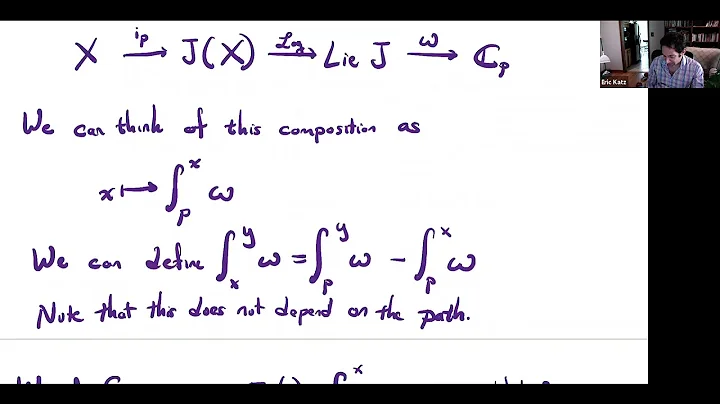 X i_p→ J(X) Log→ Lie J ω→ ℂ_p
Eric Katz
We can think of this composition as
x ↦ ∫_p^x ω
We can define ∫_x^y ω = ∫_p^y ω - ∫_p^x ω
Note that this does not depend on the path.